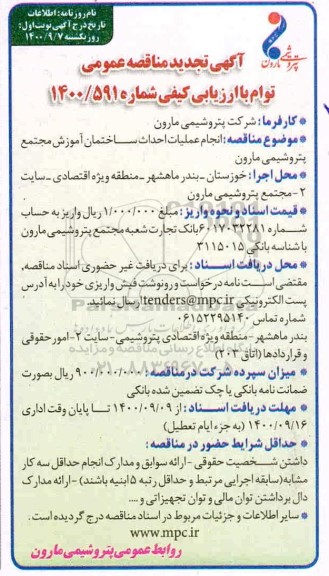 نام روزنامه: اطلاعات
تاریخ درج آگهی نوبت اول:
روز یکشنبه ۱۴۰۰/۹/۷
پتروشیمی مارون
آگهی تجدید مناقصه عمومی
توام با ارزیابی کیفی شماره ۱۴۰۰/۵۹۱
کارفرما: شرکت پتروشیمی مارون
موضوع مناقصه: انجام عملیات احداث ساختمان آموزش مجتمع
پتروشیمی مارون
محل اجرا: خوزستان ـ بندر ماهشهر ـ منطقه ویژه اقتصادی ـ سایت
۲ - مجتمع پتروشیمی مارون
قیمت اسناد و نحوه واریز: مبلغ ۱/۰۰۰/۰۰۰ ریال واریز به حساب
شماره ۶۰۱۷۰۳۲۲۸۱ بانک تجارت شعبه مجتمع پتروشیمی مارون
با شناسه بانکی ۳۱۱۵۰۱۵
محل دریافت اسناد: برای دریافت غیر حضوری اسناد مناقصه،
مقتضی است نامه درخواست و رونوشت فیش واریزی خود را به آدرس
پست الکترونیکی tenders@mpc.ir ارسال نمائید.
شماره تماس ۰۶۱۵۲۲۹۵۱۴۰
بندر ماهشهر - منطقه ویژه اقتصادی پتروشیمی - سایت ۲ - امور حقوقی
و قراردادها (اتاق ۲۰۳)
میزان سپرده شرکت در مناقصه: ۹۰۰/۰۰۰/۰۰۰ ریال بصورت
ضمانت نامه بانکی یا چک تضمین شده بانکی
مهلت دریافت اسناد: از ۱۴۰۰/۰۹/۰۹ تا پایان وقت اداری
۱۴۰۰/۰۹/۱۶ (به جزء ایام تعطیل)
حداقل شرایط حضور در مناقصه:
داشتن شخصیت حقوقی - ارائه سوابق و مدارک انجام حداقل سه کار
مشابه (سابقه اجرایی مرتبط و حداقل رتبه ۵ ابنیه باشند) - ارائه مدارک
دال برداشتن توان مالی و توان تجهیزاتی و ....
سایر اطلاعات و جزئیات مربوط در اسناد مناقصه درج گردیده است.
www.mpc.ir
روابط عمومی پتروشیمی مارون